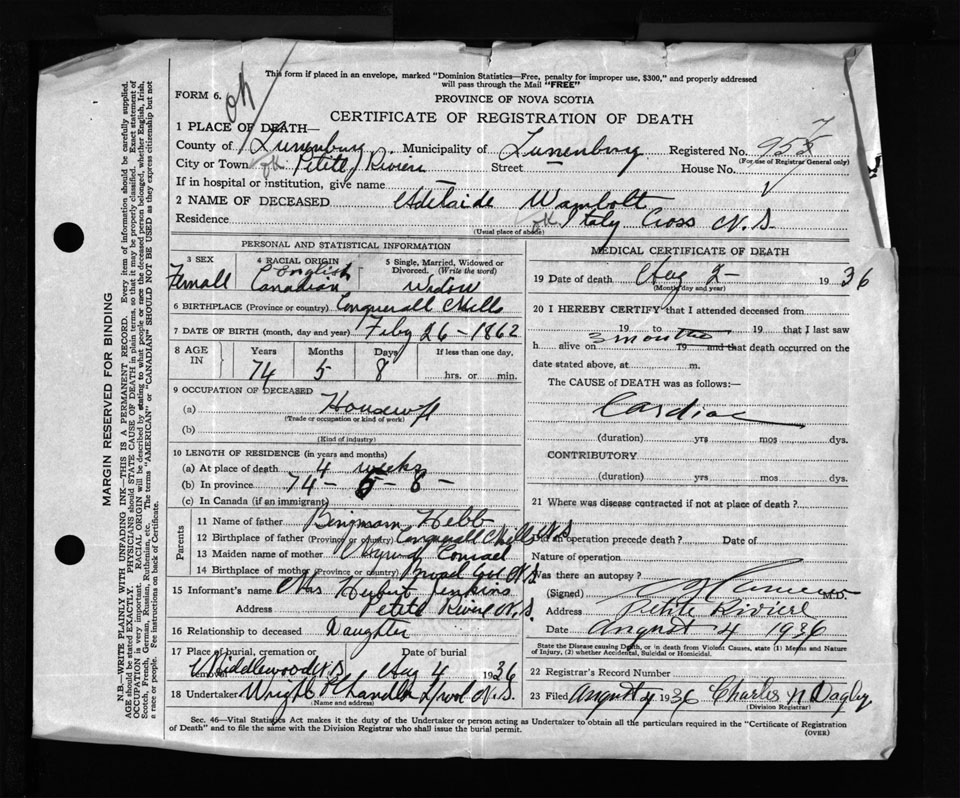 This form if placed in an envelope, marked "Dominion Statistics—Free, penalty for improper use, $300," and properly addressed
will pass through the Mail "FREE"
FORM 6. ok
PROVINCE OF NOVA SCOTIA
CERTIFICATE OF REGISTRATION OF DEATH
1 PLACE OF DEATH—
County of Lunenburg Municipality of Lunenburg Registered No. 955 7
(For use of Registrar General only)
City or Town ok Petite Riviere Street House No.
If in hospital or institution, give name —
2 NAME OF DECEASED Adelaide Wambolt
Residence ok Italy Cross N.S.
(Usual place of abode)
PERSONAL AND STATISTICAL INFORMATION
3 SEX 4 RACIAL ORIGIN 5 Single, Married, Widowed or
Divorced. (Write the word)
Femall English Canadian Widow
6 BIRTHPLACE (Province or country) Conquerall Mills
7 DATE OF BIRTH (month, day and year) Feby 26-1862
8 AGE IN Years Months Days If less than one day,
74 5 8 hrs. or min.
9 OCCUPATION OF DECEASED
(a) Housewife
(Trade or occupation or kind of work)
(b)
(Kind of industry)
10 LENGTH OF RESIDENCE (in years and months)
(a) At place of death 4 weeks
(b) In province 74-5-8-
(c) In Canada (if an immigrant)
Parents
11 Name of father Hebb
12 Birthplace of father (Province or country) Conquerall Mills N.S
13 Maiden name of mother
14 Birthplace of mother (Province or country) N.S
15 Informant's name Mrs Jenkins
Address Petite Riviere N.S.
16 Relationship to deceased Daughter
17 Place of burial, cremation or removal Date of burial
Middlewood N.S. Aug 4 1936
18 Undertaker Wright Chandler N.S.
(Name and address)
MEDICAL CERTIFICATE OF DEATH
19 Date of death Aug 2- 1936
(Month, day and year)
20 I HEREBY CERTIFY that I attended deceased from
19 to 19 that I last saw
h alive on 3 months 19 and that death occurred on the
date stated above, at m.
The CAUSE of DEATH was as follows:—
Cardiac
(duration) yrs mos dys.
CONTRIBUTORY
(duration) yrs mos dys.
21 Where was disease contracted if not at place of death?
Did an operation precede death? Date of
Nature of operation
Was there an autopsy?
(Signed) M.D.
Address Petite Riviere
Date August 4 1936
State the Disease causing Death, or in death from Violent Causes, state (1) Means and Nature
of Injury, (2) whether Accidental, Suicidal or Homicidal.
22 Registrar's Record Number
23 Filed August 4 1936 Charles N Dagley
(Division Registrar)
Sec. 46—Vital Statistics Act makes it the duty of the Undertaker or person acting as Undertaker to obtain all the particulars required in the "Certificate of Registration
of Death" and to file the same with the Division Registrar who shall issue the burial permit. (OVER)
MARGIN RESERVED FOR BINDING
N.B.—WRITE PLAINLY WITH UNFADING INK—THIS IS A PERMANENT RECORD. Every item of information should be carefully supplied.
AGE should be stated EXACTLY. PHYSICIANS should STATE CAUSE OF DEATH in plain terms, so that it may be properly classified. Exact statement of
OCCUPATION is very important. RACIAL ORIGIN will be described by stating to what people or race the deceased person belonged, whether English, Irish,
Scotch, French, German, Russian, Ruthenian, etc. The terms "AMERICAN" or "CANADIAN" SHOULD NOT BE USED as they express citizenship but not
a race or people. See instructions on back of Certificate.